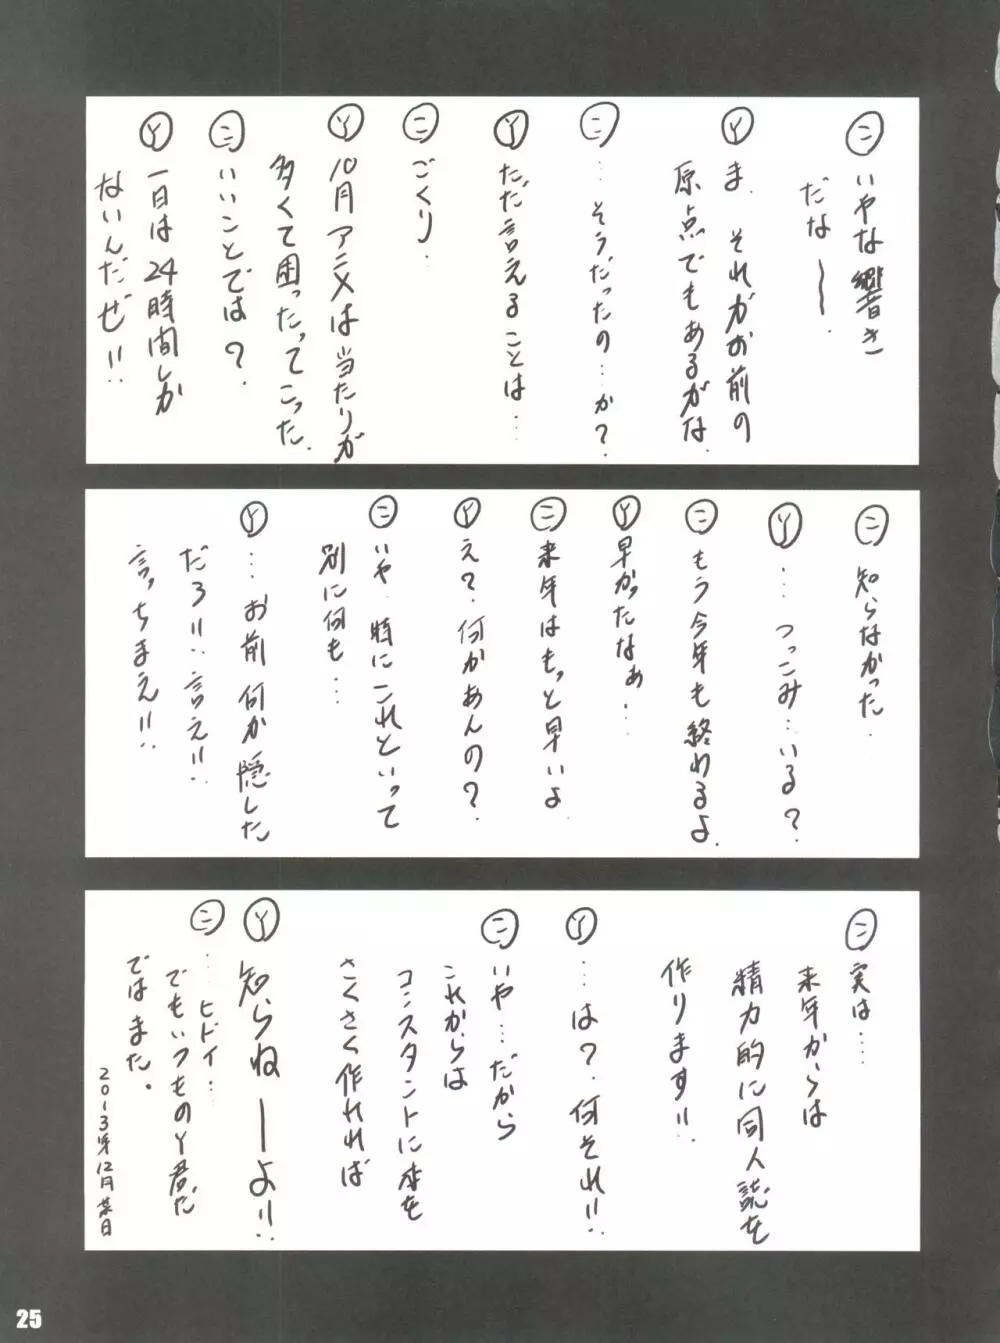 ㊁ いやな響き
だな――.
Ⓨ ま. それがお前の
原点でもあるがな
㊁ …そうだったの…か?
Ⓨ ただ言えることは…
㊁ ごくり.
Ⓨ 10月アニメは当たりが
多くて困ったってこった.
㊁ いいことでは?
Ⓨ 一日は24時間しか
ないんだぜ!!
㊁ 知らなかった.
Ⓨ …つっこみ…いる?
㊁ もう今年も終わるよ.
Ⓨ 早かったなぁ…
㊁ 来年はもっと早いよ
Ⓨ え? 何かあんの?
㊁ いや. 特にこれといって
別に何も…
Ⓨ …お前 何か隠した
だろ!! 言え!!
言っちまえ!!
㊁ 実は……
来年からは
精力的に同人誌を
作ります!!
Ⓨ …は? 何それ!!
㊁ いや…だから
これからは
コンスタントに本を
さくさく作れれば
Ⓨ 知らねーーよ!!
㊁ …ヒドイ…
でもいつものY君だ
では また。
2013年12月某日
25